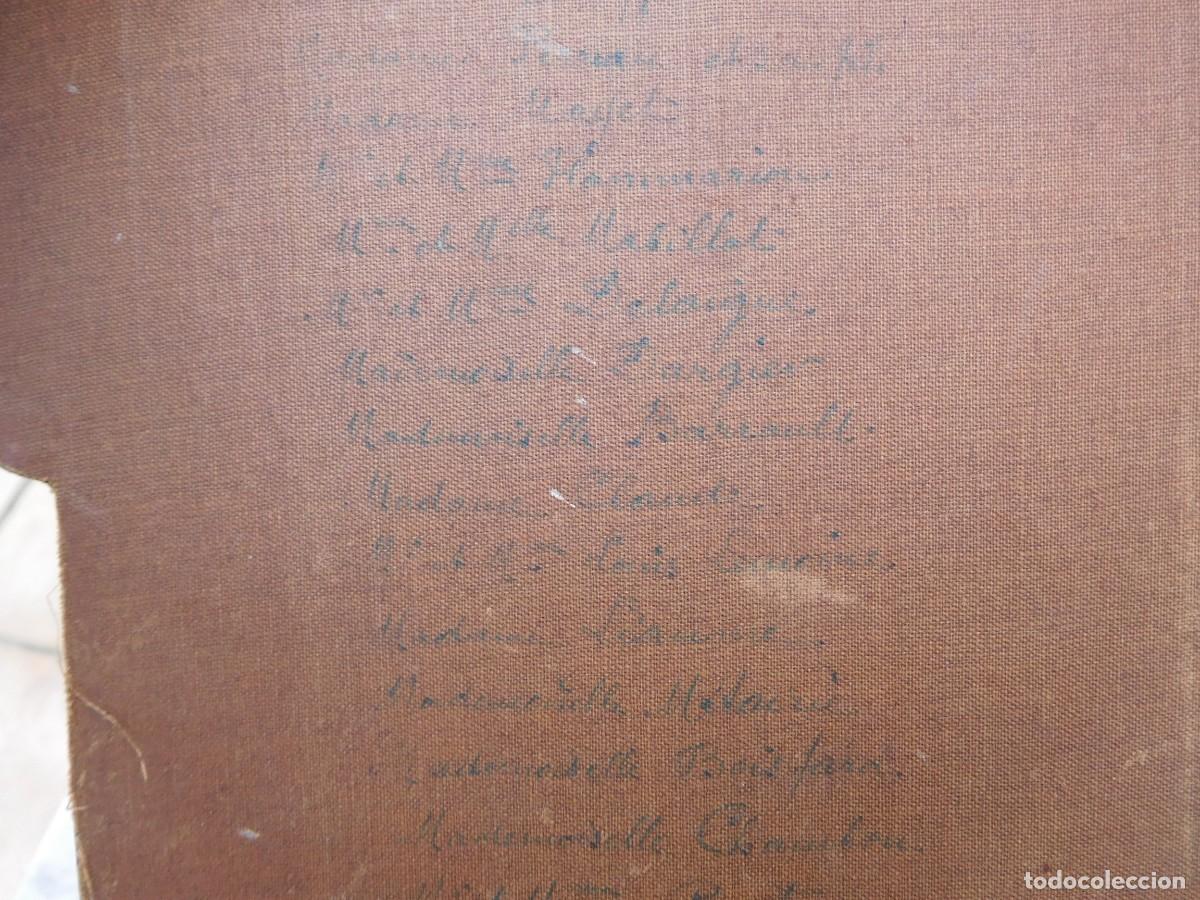 Madame
Madame Mayet
Mr et Mme Flammarion.
Mme et Melle Mabillot
Mr et Mme Delaigue.
Mademoiselle Largier
Mademoiselle Barrault.
Madame Claude
Mr et Mme Louis
Madame
Mademoiselle Métairie.
Mademoiselle Boisfard.
Mademoiselle Chambon.
Mr et Mme
todocoleccion